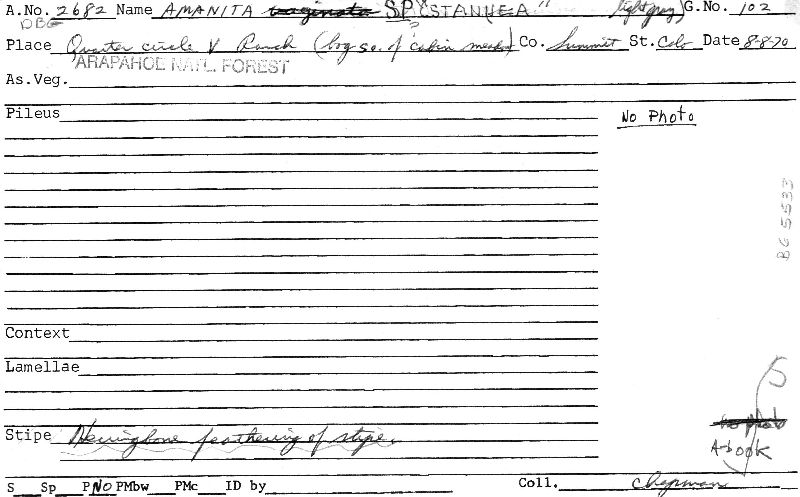 A.No. 2682 Name AMANITA vaginata SP. "STANHEA" light gray) G.No. 102
DBG ?
Place Quarter circle V Ranch (bog so. of cabin meadow) Co. Summit St. Colo Date 8-8-70
ARAPAHOE NATL. FOREST
As.Veg.
Pileus No Photo
BG 5533
Context
Lamellae
no photo
Stipe Herringbone feathering of stipe.
A-book
S Sp P NO PMbw PMc ID by Coll. Chapman